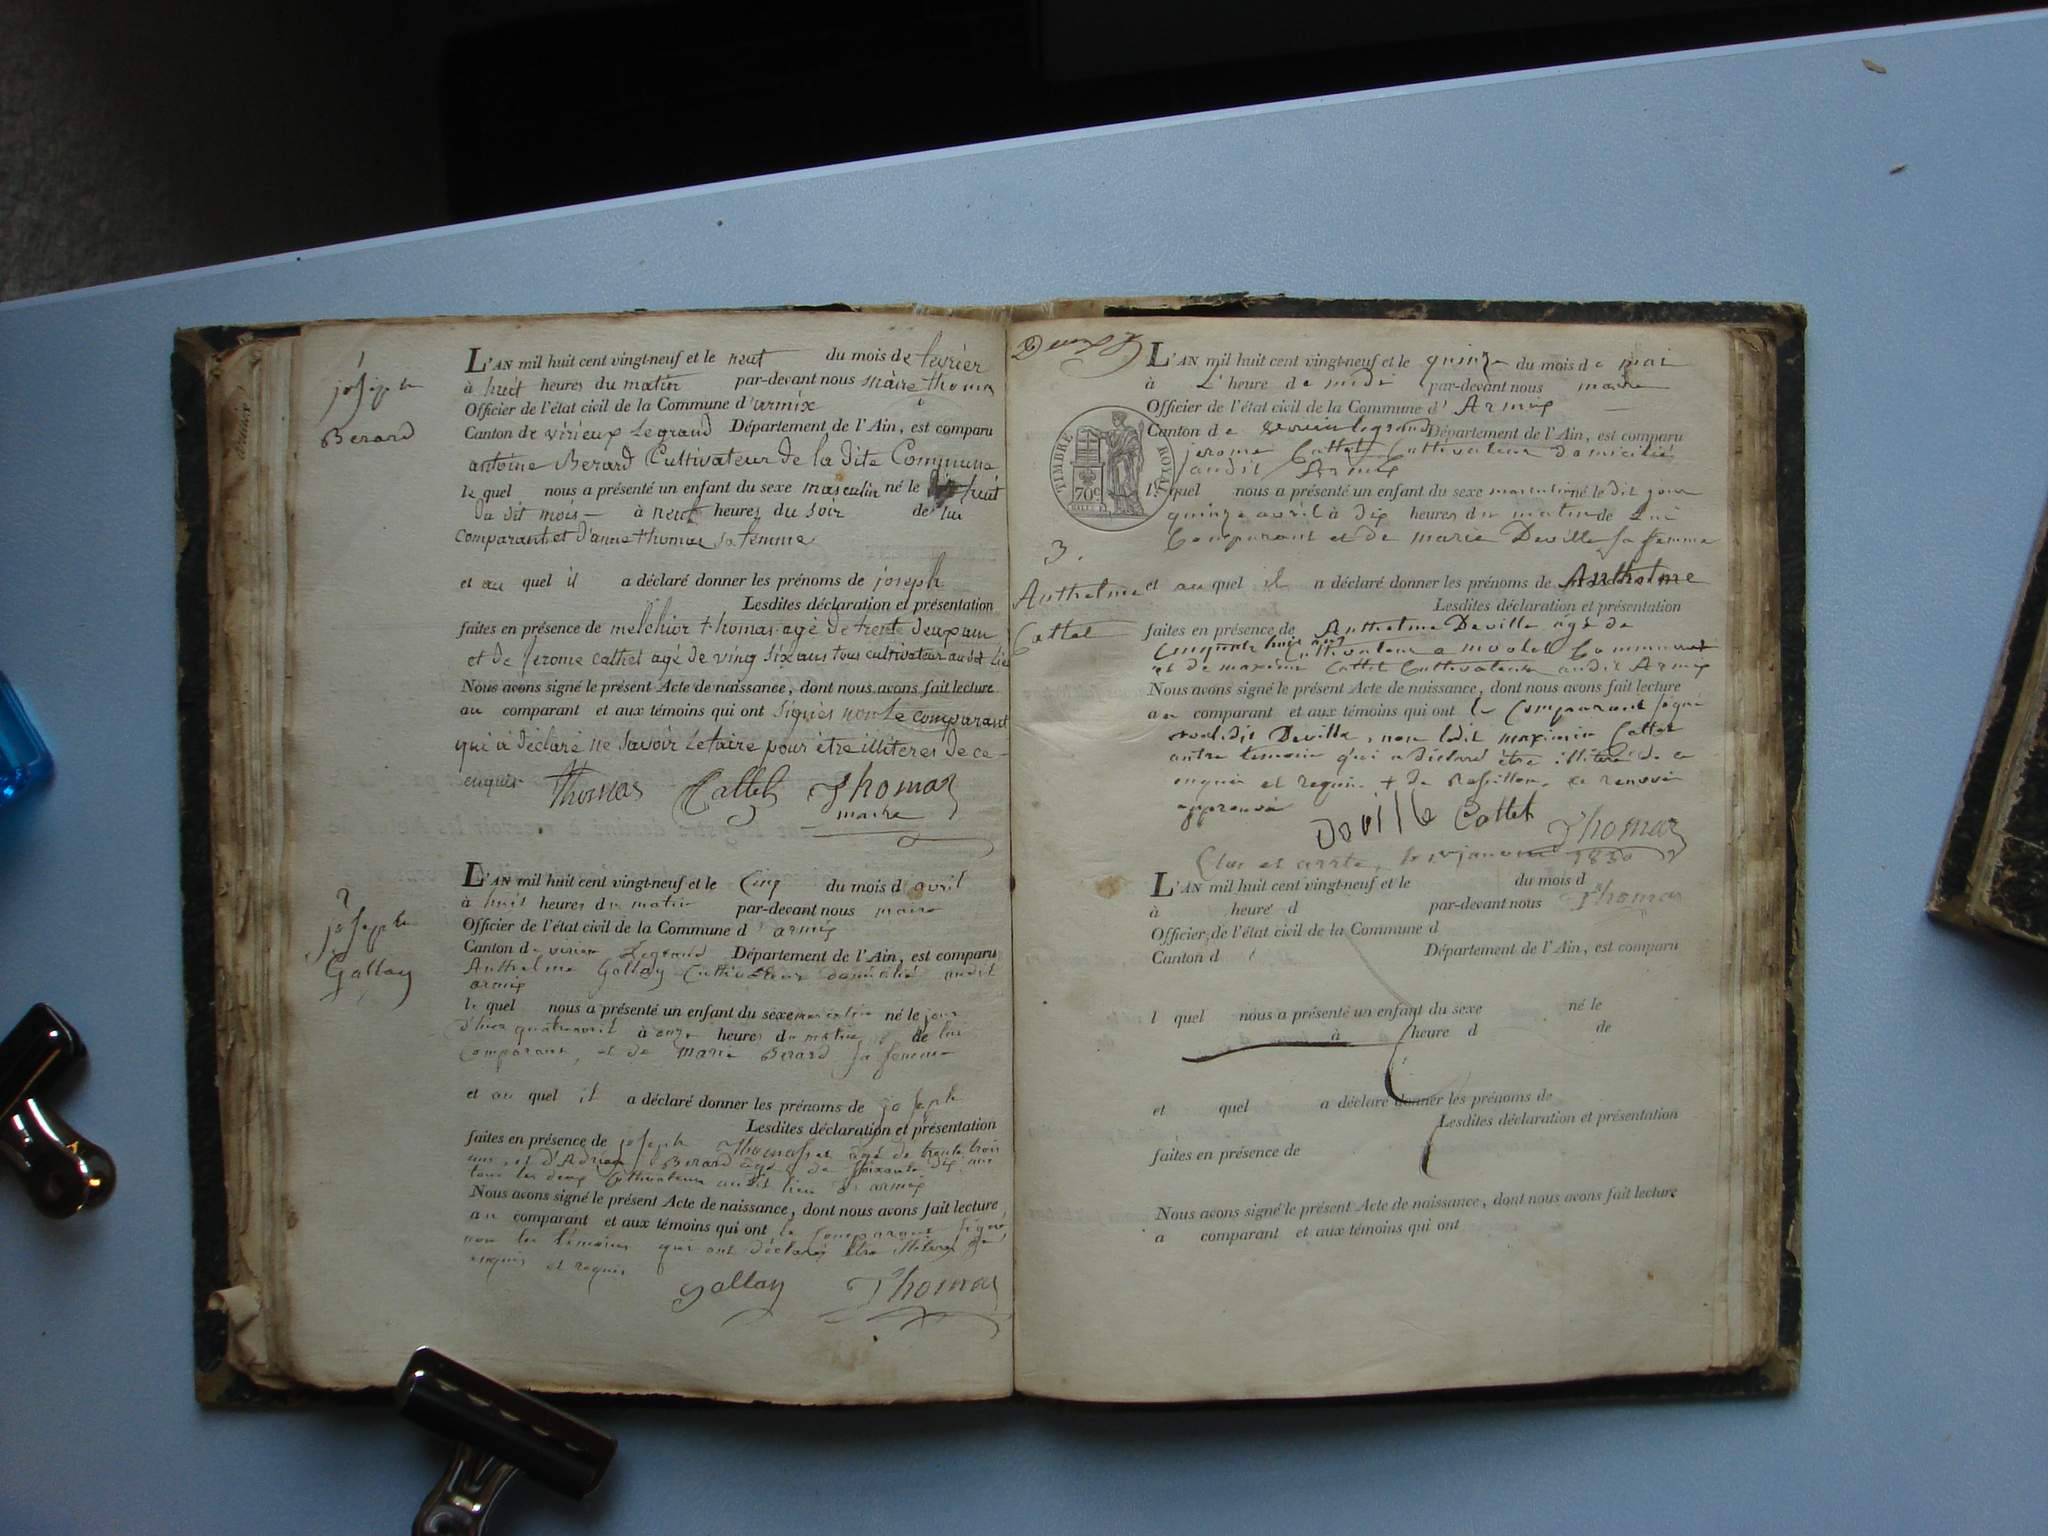 1
joseph
Berard
L'AN mil huit cent vingt-neuf et le neuf du mois de fevrier
à huit heures du matin par-devant nous maire thomas
Officier de l'état civil de la Commune d'armix
Canton de virieux Legrand Département de l'Ain, est comparu
antoine Berard Cultivateur de la dite Commune
le quel nous a présenté un enfant du sexe masculin né le huit
du dit mois à neuf heures du soir de lui
comparant et d'anne thomas sa femme
et au quel il a déclaré donner les prénoms de joseph
Lesdites déclaration et présentation
faites en présence de melchior thomas agé de trente deux ans
et de jerome cathet agé de ving six ans tous cultivateur au dit lieu
Nous avons signé le présent Acte de naissance, dont nous avons fait lecture
au comparant et aux témoins qui ont signés non Le comparant
qui a déclaré ne savoir Lefaire pour être illiteres de ce
enquis Thomas Cattet Thomas
maire
2
joseph
Gallay
L'AN mil huit cent vingt-neuf et le Cinq du mois d avril
à huit heures du matin par-devant nous maire
Officier de l'état civil de la Commune d'armix
Canton de virieu Legrand Département de l'Ain, est comparu
Anthelme Gallay Cultivateur domicilié audit
armix
le quel nous a présenté un enfant du sexe masculin né le jour
d'hier quatre avril à onze heures du matin de lui
comparant, et de marie Berard sa femme
et au quel il a déclaré donner les prénoms de joseph
Lesdites déclaration et présentation
faites en présence de joseph Thomasset agé de trente trois
ans, et d'Adrien Berard agé de soixante dix ans
tous les deux Cultivateurs audit lieu d'armix
Nous avons signé le présent Acte de naissance, dont nous avons fait lecture
au comparant et aux témoins qui ont le comparant signé
non les témoins qui ont déclarés être illiteres de ce
enquis et requis
Gallay Thomas
L'AN mil huit cent vingt-neuf et le quinze du mois de mai
à L'heure de midi par-devant nous maire
Officier de l'état civil de la Commune d'Armix
Canton de virieu legrand Département de l'Ain, est comparu
jerome Cattet Cultivateur domicilié
audit Armix
TIMBRE ROYAL
70c
le quel nous a présenté un enfant du sexe masculin né le dit jour
quinze avril à dix heures du matin de Lui
Comparant et de marie Deville sa femme
3.
Anthelme
Cattet
et au quel il a déclaré donner les prénoms de Anthelme
Lesdites déclaration et présentation
faites en présence de Anthelme Deville agé de
Cinquante huit ans Cultivateur a
et de maximin Cattet Cultivateur audit Armix
Nous avons signé le présent Acte de naissance, dont nous avons fait lecture
au comparant et aux témoins qui ont le Comparant signé
Deville, non ledit maximin Cattet
autre temoin qui a déclaré être illiteré de ce
enquis et requis + de Rossillon. ce renvoi
approuvé
Deville Cattet Thomas
Clos et arrêté, le 1er janvier 1830
Thomas
L'AN mil huit cent vingt-neuf et le du mois d
à heure d par-devant nous
Officier de l'état civil de la Commune d
Canton d Département de l'Ain, est comparu
l quel nous a présenté un enfant du sexe né le
à heure d de
et quel a déclaré donner les prénoms de
Lesdites déclaration et présentation
faites en présence de
Nous avons signé le présent Acte de naissance, dont nous avons fait lecture
a comparant et aux témoins qui ont